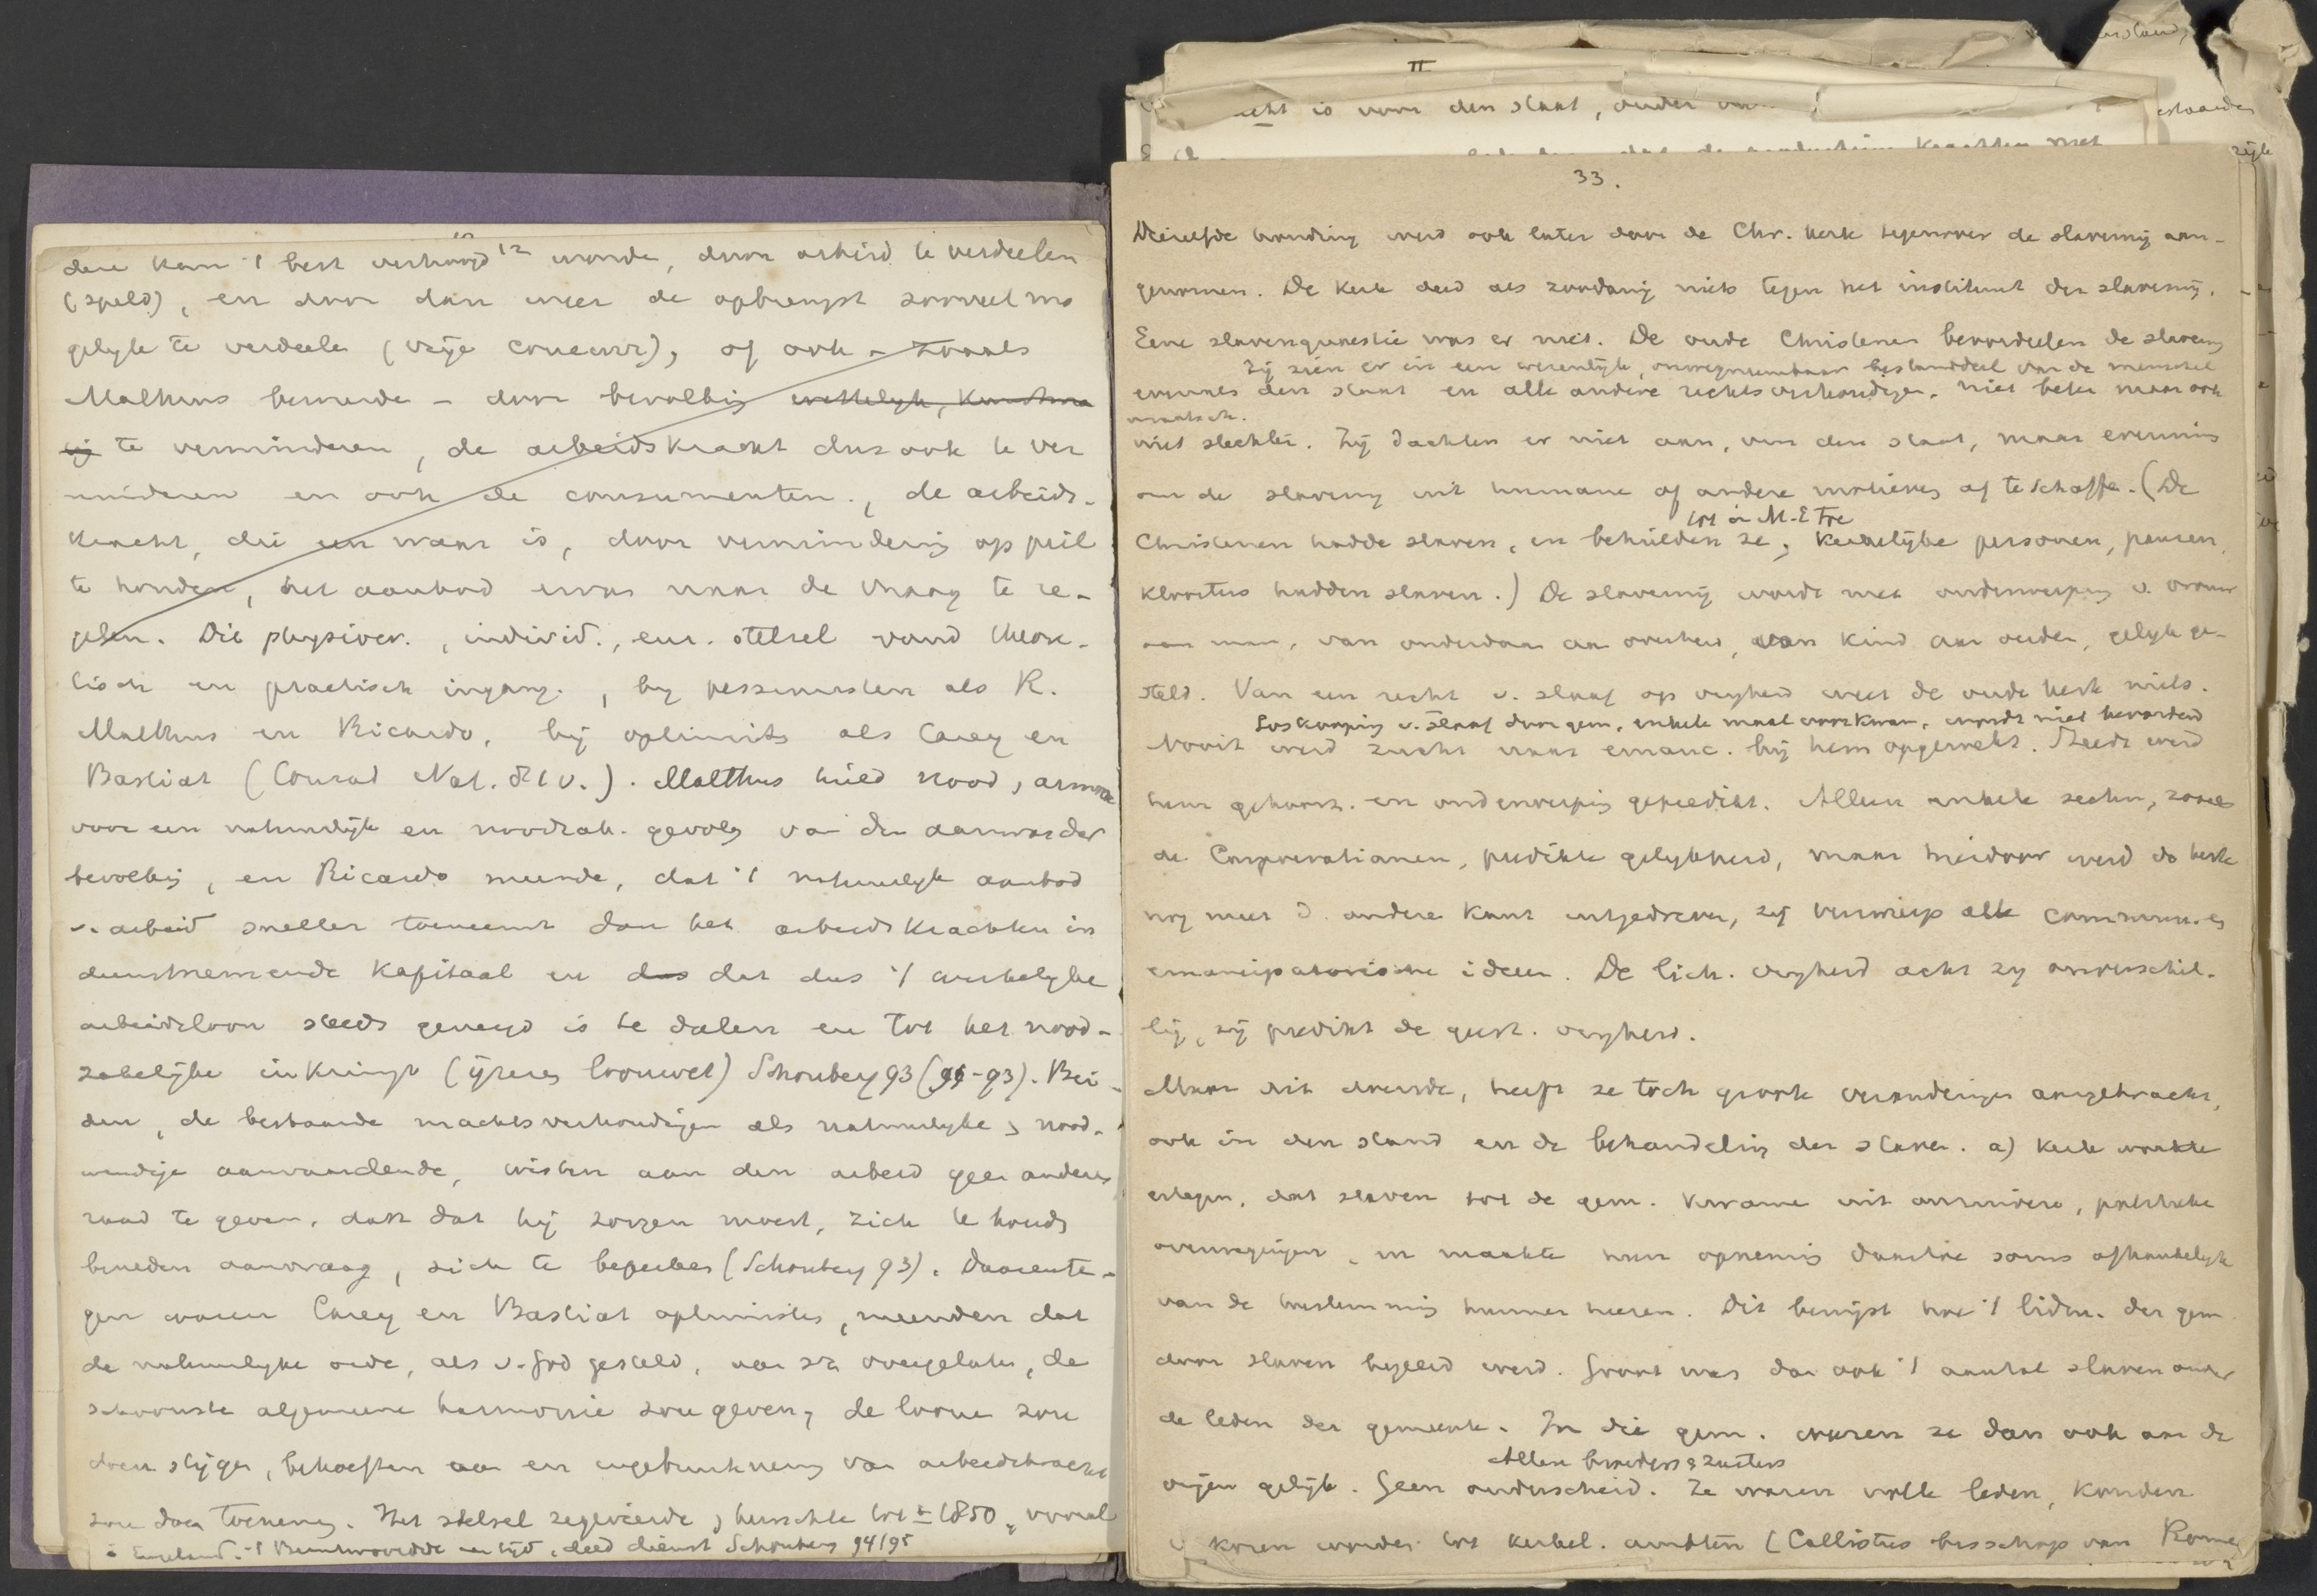 dere kan 't best verhoogd worden, door arbeid te verdeelen
(speld), en door dan weer de opbrengst zooveel mo
gelijk te verdeele (vrije concurr.), of ook - zooals
Malthus beweerde - door bevolking wettelijk, kunstma
tig te verminderen, de arbeidskracht dus ook te ver
minderen en ook de consumenten, de arbeids-
kracht, die een waar is, door vermindering op peil
te houden, het aanbod ervan naar de vraag te re-
gelen. Dit physiocr., individ., eur. stelsel vond theore-
tisch en practisch ingang, bij pessimisten als R.
Malthus en Ricardo, bij optimists als Carey en
Bastiat (Conrad Nat. ). Malthus hield nood, armoe
voor een natuurlijk en noodzak. gevolg van den aanwas der
bevolking, en Ricardo meende, dat 't natuurlijk aanbod
v. arbeid sneller toeneemt dan het arbeidskrachten in
dienstnemende kapitaal en das dat dus 't werkelijke
arbeidsloon steeds geneigd is te dalen en tot het nood-
zakelijke inkrimpt (ijzeren loonwet) Schonberg 93 (-93). Bei-
den, de bestaande machtsverhoudingen als natuurlijke, nood-
wendige aanvaardende, wisten aan den arbeid geen anderen
raad te geven, dan dat hij zorgen moest, zich te houden
beneden aanvraag, zich te beperken (Schonberg 93). Daarente-
gen waren Carey en Bastiat optimisten, meenden dat
de natuurlijke orde, als v. God gesteld, aan zich overgelaten, de
schoonste algemeene harmonie zou geven, de loonen zou
doen stijgen, behoeften aan en ingebruikneming van arbeidskracht
zou doen toenemen. Het stelsel zegevierde, heerschte tot ± 1850, vooral
in Engeland. 't Beantwoordde aan tijd, deed dienst Schonberg 94/95
II
echt is voor den staat, onder
33.
Diezelfde houding werd ook later door de Chr. kerk tegenover de slavernij aan-
genomen. De kerk deed als zoodanig niets tegen het instituut der slavernij.
Eene slavenquaestie was er niet. De oude Christenen beoordeelen de slavernij
Zij zien er in een wezenlijk, onwegneembaar bestanddeel van de menschel
evenals den staat en alle andere rechtsverhoudingen, niet beter maar ook
maatsch.
niet slechter. Zij dachten er niet aan, om den staat, maar evenmin
om de slavernij uit humane of andere motieven af te schaffe. (De
tot in M-E toe
Christenen hadde slaven, en behielden ze, kerkelijke personen, pausen,
kloosters hadden slaven.) De slavernij wordt met onderwerping v. vrouw
aan man, van onderdaan aan overheid, van kind aan ouders, gelijk ge-
steld. Van een recht v. slaaf op vrijheid weet de oude kerk niets.
Loskooping v. slaaf door gem. enkele maal voorkwam, wordt niet bevorderd
Nooit werd zucht naar emanc. bij hem opgewekt. Steeds werd
hem gehoorz. en onderwerping gepredikt. Alleen enkele secten, zooals
de Carpocratianen, predikte gelijkheid, maar hierdoor werd de kerk
nog meer d. andere kant uitgedreven, zij verwierp alle commun. en
emancipatorische ideen. De lich. vrijheid acht zij onverschil-
lig, zij predikt de geest. vrijheid.
Maar dit deerde, heeft ze toch groote veranderingen aangebracht,
ook in den stand en de behandeling der slaven. a) Kerk waakte
ertegen, dat slaven tot de gem. kwame uit onzuivere, politieke
overwegingen, en maakte hun opneming daartoe soms afhankelijk
van de toestemming hunner heeren. Dit bewijst hoe 't lidm. der gem
door slaven begeerd werd. Groot was dan ook 't aantal slaven onder
de leden der gemeente. In die gem. waren ze dan ook aan de
Allen broeders & zusters
vrijen gelijk. Geen onderscheid. Ze waren volle leden, konden
koren worden tot kerkel. ambten (Callistus bisschop van Rome